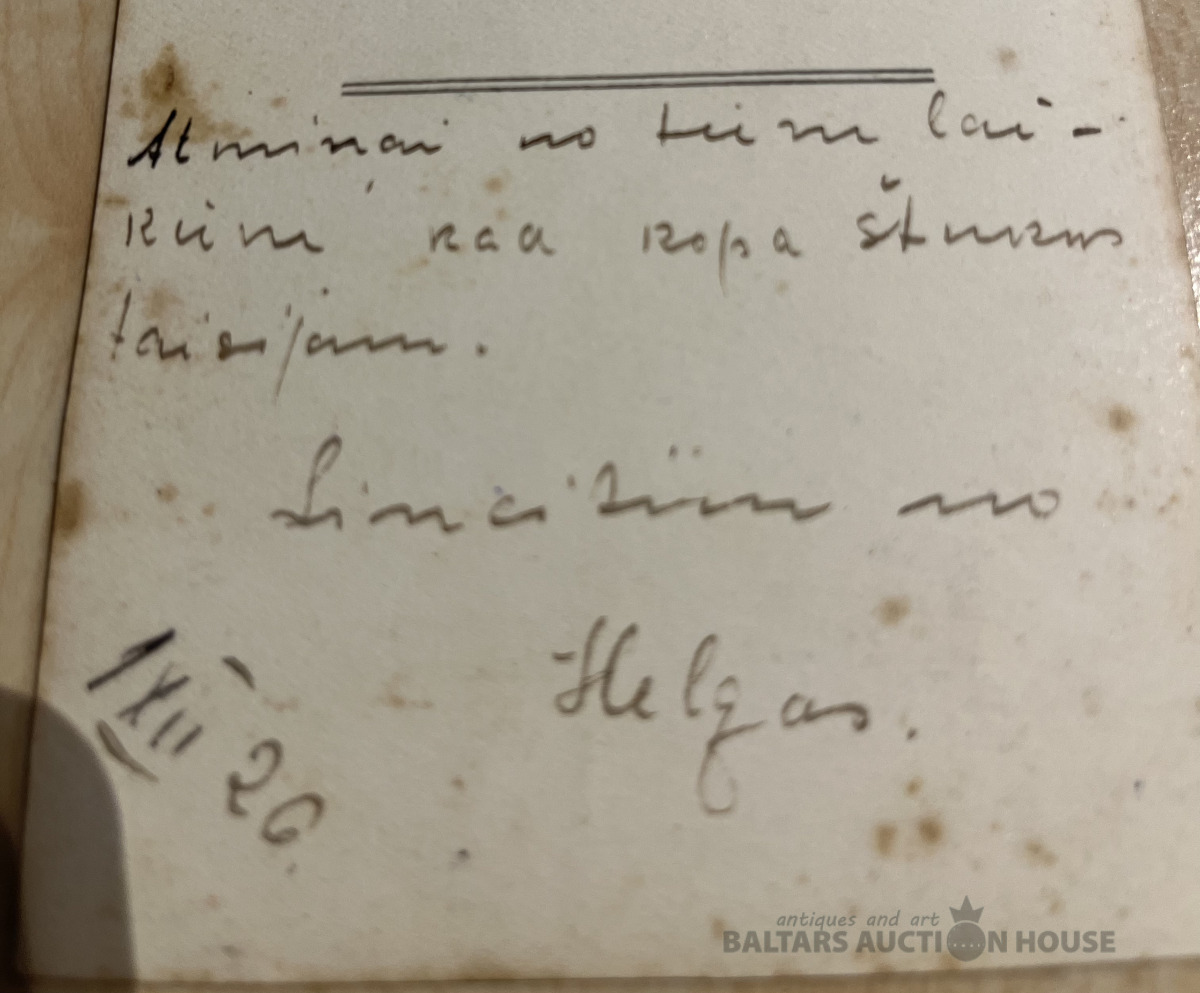 Atmiņai no tiem lai-
kiem kad kopā štukas
taisijām.
Lincītim no
Helgas.
1 XII 26.
antiques and art
BALTARS AUCTION HOUSE